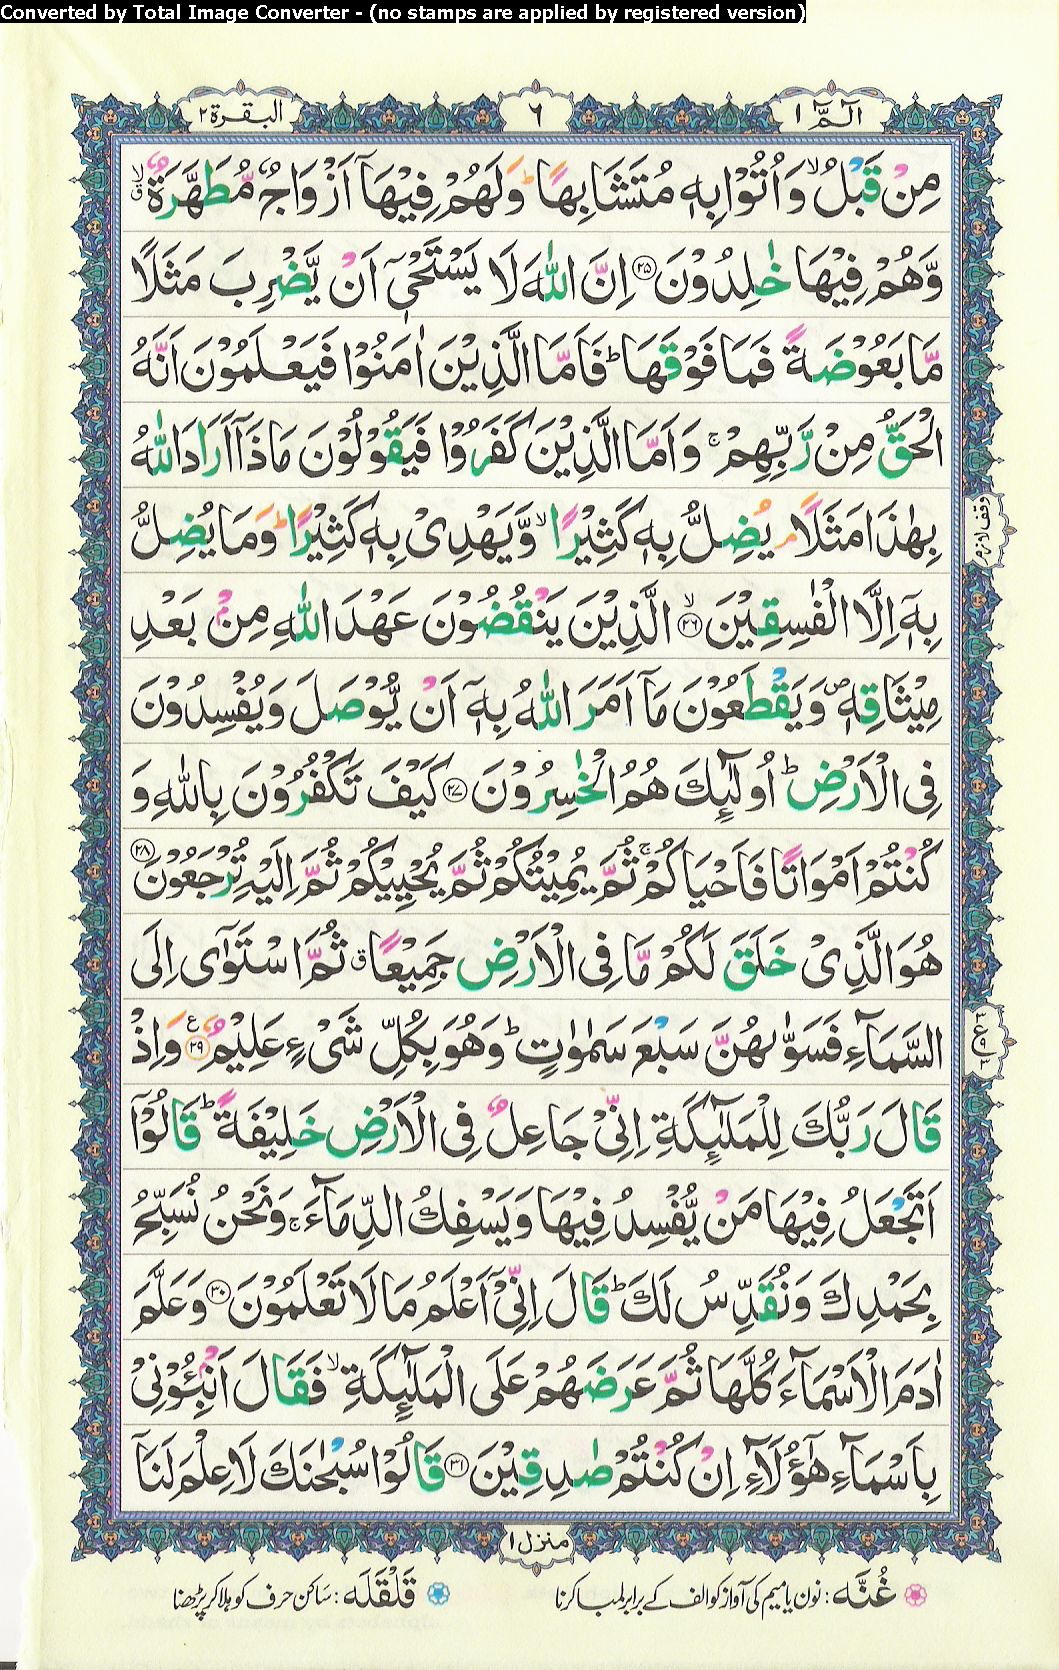 Converted by Total Image Converter - (no stamps are applied by registered version)
الٓمّٓ ١
٦
البقرة ٢
مِنْ قَبْلُ ۙ وَاُتُوْا بِهٖ مُتَشَابِهًا ؕ وَلَهُمْ فِيْهَاۤ اَزْوَاجٌ مُّطَهَّرَةٌ ۙۗ
وَّهُمْ فِيْهَا خٰلِدُوْنَ ۝۲۵ اِنَّ اللّٰهَ لَا يَسْتَحْیٖۤ اَنْ يَّضْرِبَ مَثَلًا
مَّا بَعُوْضَةً فَمَا فَوْقَهَا ؕ فَاَمَّا الَّذِيْنَ اٰمَنُوْا فَيَعْلَمُوْنَ اَنَّهُ
الْحَقُّ مِنْ رَّبِّهِمْ ۚ وَاَمَّا الَّذِيْنَ كَفَرُوْا فَيَقُوْلُوْنَ مَاذَاۤ اَرَادَ اللّٰهُ
بِهٰذَا مَثَلًا ۘ يُضِلُّ بِهٖ كَثِيْرًا ۙ وَّيَهْدِیْ بِهٖ كَثِيْرًا ؕ وَمَا يُضِلُّ
وقف لازم
بِهٖۤ اِلَّا الْفٰسِقِيْنَ ۝۲۶ ۙ الَّذِيْنَ يَنْقُضُوْنَ عَهْدَ اللّٰهِ مِنْۢ بَعْدِ
مِيْثَاقِهٖ ۪ وَيَقْطَعُوْنَ مَاۤ اَمَرَ اللّٰهُ بِهٖۤ اَنْ يُّوْصَلَ وَيُفْسِدُوْنَ
فِی الْاَرْضِ ؕ اُولٰٓئِكَ هُمُ الْخٰسِرُوْنَ ۝۲۷ كَيْفَ تَكْفُرُوْنَ بِاللّٰهِ وَ
كُنْتُمْ اَمْوَاتًا فَاَحْيَاكُمْ ۚ ثُمَّ يُمِيْتُكُمْ ثُمَّ يُحْيِيْكُمْ ثُمَّ اِلَيْهِ تُرْجَعُوْنَ ۝۲۸
هُوَ الَّذِیْ خَلَقَ لَكُمْ مَّا فِی الْاَرْضِ جَمِيْعًا ۗ ثُمَّ اسْتَوٰۤی اِلَی
السَّمَآءِ فَسَوّٰىهُنَّ سَبْعَ سَمٰوٰتٍ ؕ وَهُوَ بِكُلِّ شَیْءٍ عَلِيْمٌ ۝۲۹ ع وَاِذْ
٣ ع ٩ ٣
قَالَ رَبُّكَ لِلْمَلٰٓئِكَةِ اِنِّیْ جَاعِلٌ فِی الْاَرْضِ خَلِيْفَةً ؕ قَالُوْۤا
اَتَجْعَلُ فِيْهَا مَنْ يُّفْسِدُ فِيْهَا وَيَسْفِكُ الدِّمَآءَ ۚ وَنَحْنُ نُسَبِّحُ
بِحَمْدِكَ وَنُقَدِّسُ لَكَ ؕ قَالَ اِنِّیْۤ اَعْلَمُ مَا لَا تَعْلَمُوْنَ ۝۳۰ وَعَلَّمَ
اٰدَمَ الْاَسْمَآءَ كُلَّهَا ثُمَّ عَرَضَهُمْ عَلَی الْمَلٰٓئِكَةِ ۙ فَقَالَ اَنْۢبِـُٔوْنِیْ
بِاَسْمَآءِ هٰۤؤُلَآءِ اِنْ كُنْتُمْ صٰدِقِيْنَ ۝۳۱ قَالُوْا سُبْحٰنَكَ لَا عِلْمَ لَنَاۤ
منزل ١
غُنَّه : نون یا میم کی آواز کو الف کے برابر لمبا کرنا
قَلْقَلَه : ساکن حرف کو ہلا کر پڑھنا